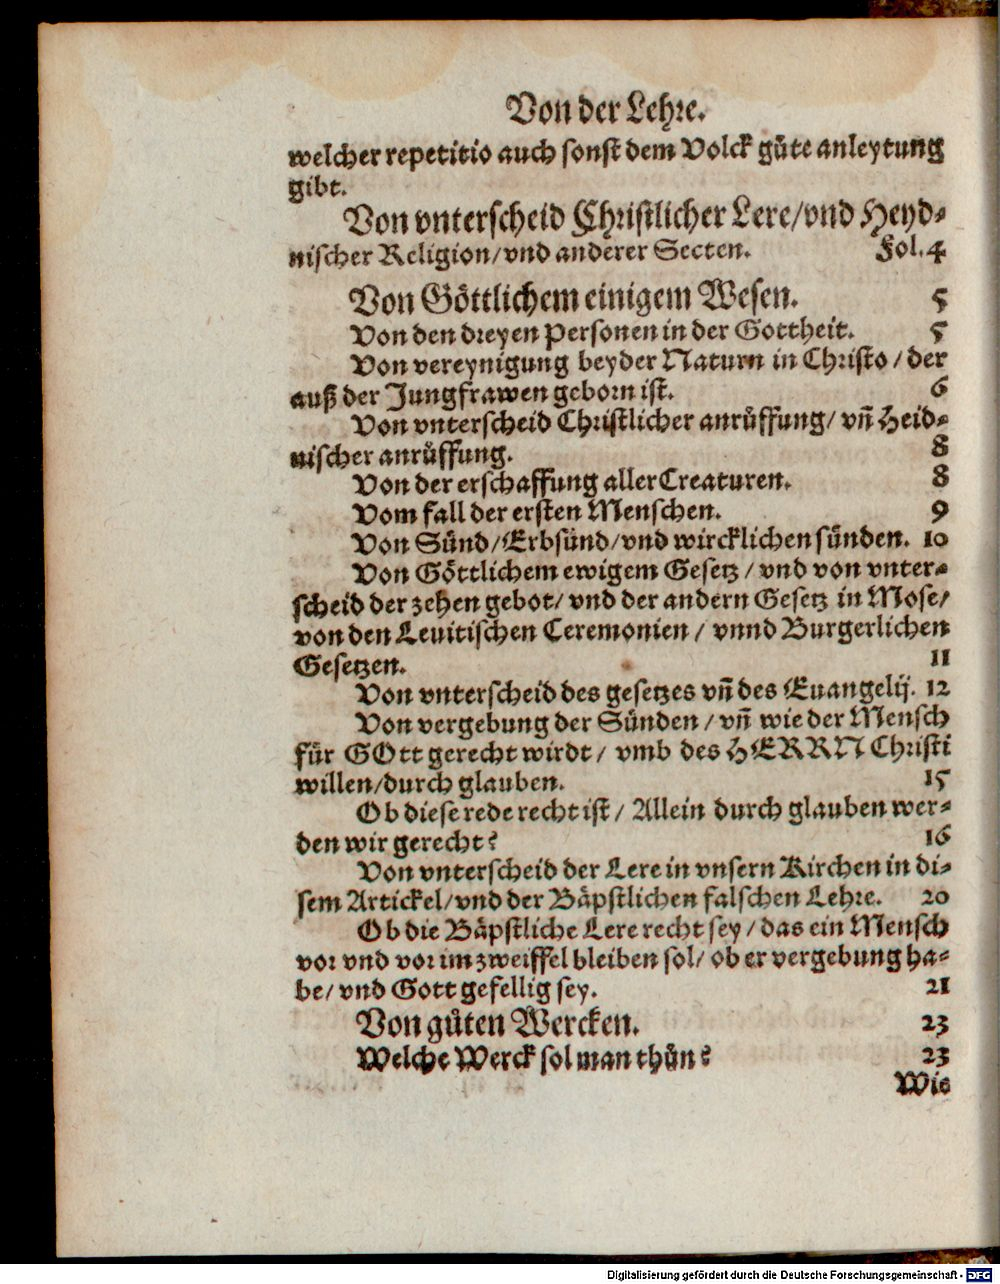 Von der Lehre.
welcher repetitio auch sonst dem Volck gůte anleytung
gibt.
Von vnterscheid Christlicher Lere/vnd Heyd-
nischer Religion/vnd anderer Secten. Fol. 4
Von Göttlichem einigem Wesen. 5
Von den dreyen Personen in der Gottheit. 5
Von vereynigung beyder Naturn in Christo / der
auß der Jungfrawen geborn ist. 6
Von vnterscheid Christlicher anrůffung/ vñ Heid-
nischer anrůffung. 8
Von der erschaffung aller Creaturen. 8
Vom fall der ersten Menschen. 9
Von Sünd/Erbsünd/vnd wircklichen sünden. 10
Von Göttlichem ewigem Gesetz / vnd von vnter-
scheid der zehen gebot/ vnd der andern Gesetz in Mose/
von den Leuitischen Ceremonien / vnnd Burgerlichen
Gesetzen. 11
Von vnterscheid des gesetzes vñ des Euangelij. 12
Von vergebung der Sünden / vñ wie der Mensch
für GOtt gerecht wirdt / vmb des HERRN Christi
willen/durch glauben. 15
Ob diese rede recht ist / Allein durch glauben wer-
den wir gerecht? 16
Von vnterscheid der Lere in vnsern Kirchen in di-
sem Artickel/vnd der Bäpstlichen falschen Lehre. 20
Ob die Bäpstliche Lere recht sey / das ein Mensch
vor vnd vor im zweiffel bleiben sol/ ob er vergebung ha-
be/ vnd Gott gefellig sey. 21
Von gůten Wercken. 23
Welche Werck sol man thůn? 23
Wie
Digitalisierung gefördert durch die Deutsche Forschungsgemeinschaft - DFG